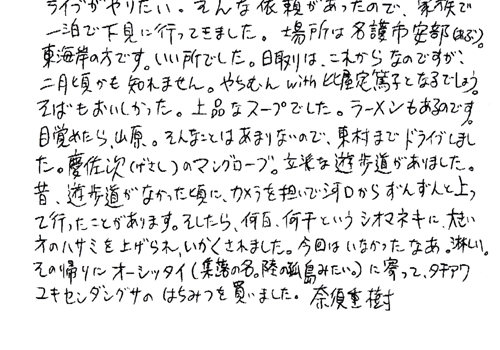 ライブがやりたい。そんな依頼があったので、家族で
一泊で下見に行ってきました。場所は名護市安部(あぶ)。
東海岸の方です。いい所でした。日取りは、これからなのですが、
二月頃かも知れません。やちむんwith比屋定篤子となるでしょう。
そばもおいしかった。上品なスープでした。ラーメンもあるのです。
目覚めたら、山原。そんなことはあまりないので、東村までドライブしまし
た。慶佐次(げさし)のマングローブ。立派な遊歩道がありました。
昔、遊歩道がなかった頃に、カメラを担いで河口からずんずんと上っ
て行ったことがあります。そしたら、何百、何千というシオマネキに、大きい
方のハサミを上げられ、いかくされました。今回はいなかったなあ。淋しい。
その帰りにオーシッタイ(集落の名。陸の孤島みたい。)に寄って、タチアワ
ユキセンダングサのはちみつを買いました。 奈須重樹